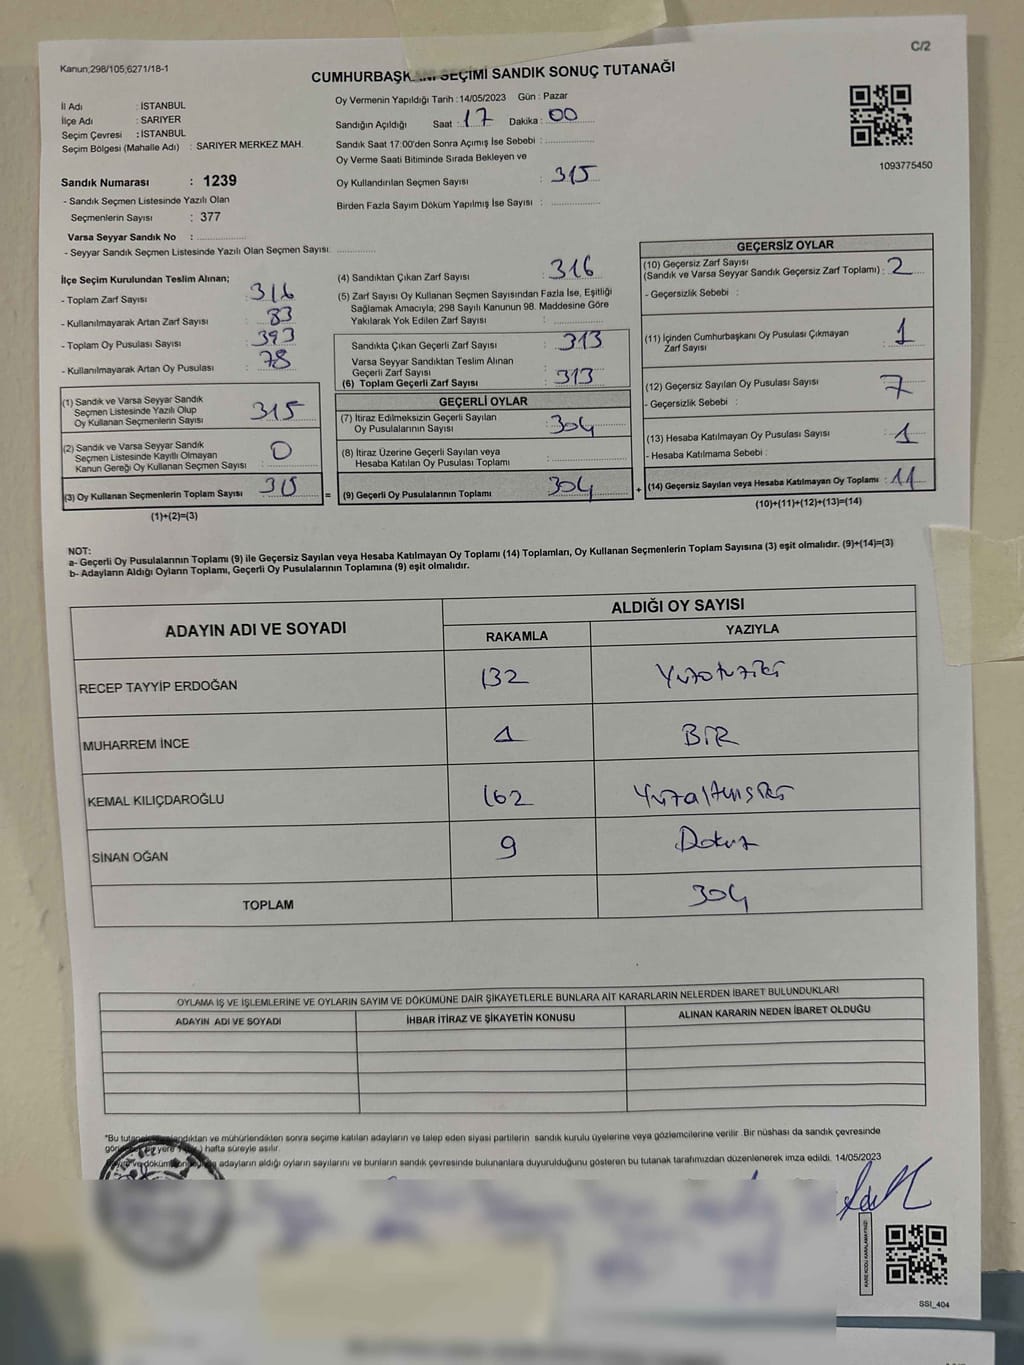 C/2
Kanun;298/105,6271/18-1
CUMHURBAŞKANI SEÇİMİ SANDIK SONUÇ TUTANAĞI
İl Adı : İSTANBUL
İlçe Adı : SARIYER
Seçim Çevresi : İSTANBUL
Seçim Bölgesi (Mahalle Adı) : SARIYER MERKEZ MAH.
Oy Vermenin Yapıldığı Tarih : 14/05/2023 Gün : Pazar
Sandığın Açıldığı Saat : 17 Dakika : 00
Sandık Saat 17:00'den Sonra Açımış İse Sebebi :
Oy Verme Saati Bitiminde Sırada Bekleyen ve
Oy Kullandırılan Seçmen Sayısı : 315
Birden Fazla Sayım Döküm Yapılmış İse Sayısı :
1093775450
Sandık Numarası : 1239
- Sandık Seçmen Listesinde Yazılı Olan
Seçmenlerin Sayısı : 377
Varsa Seyyar Sandık No :
- Seyyar Sandık Seçmen Listesinde Yazılı Olan Seçmen Sayısı:
İlçe Seçim Kurulundan Teslim Alınan;
- Toplam Zarf Sayısı : 316
- Kullanılmayarak Artan Zarf Sayısı : 83
- Toplam Oy Pusulası Sayısı : 393
- Kullanılmayarak Artan Oy Pusulası : 78
(1) Sandık ve Varsa Seyyar Sandık
Seçmen Listesinde Yazılı Olup
Oy Kullanan Seçmenlerin Sayısı : 315
(2) Sandık ve Varsa Seyyar Sandık
Seçmen Listesinde Kayıtlı Olmayan
Kanun Gereği Oy Kullanan Seçmen Sayısı : 0
(3) Oy Kullanan Seçmenlerin Toplam Sayısı : 315 =
(1)+(2)=(3)
(4) Sandıktan Çıkan Zarf Sayısı : 316
(5) Zarf Sayısı Oy Kullanan Seçmen Sayısından Fazla İse, Eşitliği
Sağlamak Amacıyla, 298 Sayılı Kanunun 98. Maddesine Göre
Yakılarak Yok Edilen Zarf Sayısı :
Sandıkta Çıkan Geçerli Zarf Sayısı : 313
Varsa Seyyar Sandıktan Teslim Alınan
Geçerli Zarf Sayısı :
(6) Toplam Geçerli Zarf Sayısı : 313
GEÇERLİ OYLAR
(7) İtiraz Edilmeksizin Geçerli Sayılan
Oy Pusulalarının Sayısı : 304
(8) İtiraz Üzerine Geçerli Sayılan veya
Hesaba Katılan Oy Pusulası Toplamı :
(9) Geçerli Oy Pusulalarının Toplamı : 304 +
GEÇERSİZ OYLAR
(10) Geçersiz Zarf Sayısı
(Sandık ve Varsa Seyyar Sandık Geçersiz Zarf Toplamı) : 2
- Geçersizlik Sebebi :
(11) İçinden Cumhurbaşkanı Oy Pusulası Çıkmayan
Zarf Sayısı : 1
(12) Geçersiz Sayılan Oy Pusulası Sayısı : 7
- Geçersizlik Sebebi :
(13) Hesaba Katılmayan Oy Pusulası Sayısı : 1
- Hesaba Katılmama Sebebi :
(14) Geçersiz Sayılan veya Hesaba Katılmayan Oy Toplamı : 11
(10)+(11)+(12)+(13)=(14)
NOT:
a- Geçerli Oy Pusulalarının Toplamı (9) ile Geçersiz Sayılan veya Hesaba Katılmayan Oy Toplamı (14) Toplamları, Oy Kullanan Seçmenlerin Toplam Sayısına (3) eşit olmalıdır. (9)+(14)=(3)
b- Adayların Aldığı Oyların Toplamı, Geçerli Oy Pusulalarının Toplamına (9) eşit olmalıdır.
ADAYIN ADI VE SOYADI ALDIĞI OY SAYISI
RAKAMLA YAZIYLA
RECEP TAYYİP ERDOĞAN 132 Yüzotuziki
MUHARREM İNCE 1 BİR
KEMAL KILIÇDAROĞLU 162 Yüzaltmışiki
SİNAN OĞAN 9 Dokuz
TOPLAM 304
OYLAMA İŞ VE İŞLEMLERİNE VE OYLARIN SAYIM VE DÖKÜMÜNE DAİR ŞİKAYETLERLE BUNLARA AİT KARARLARIN NELERDEN İBARET BULUNDUKLARI
ADAYIN ADI VE SOYADI İHBAR İTİRAZ VE ŞİKAYETİN KONUSU ALINAN KARARIN NEDEN İBARET OLDUĞU
"Bu ve mühürlendikten sonra seçime katılan adayların ve talep eden siyasi partilerin sandık kurulu üyelerine veya gözlemcilerine verilir. Bir nüshası da sandık çevresinde
yere hafta süreyle asılır.
adayların aldığı oyların sayılarını ve bunların sandık çevresinde bulunanlara duyurulduğunu gösteren bu tutanak tarafımızdan düzenlenerek imza edildi. 14/05/2023
KAREKODU KARALAMAYINIZ!
SSI_404